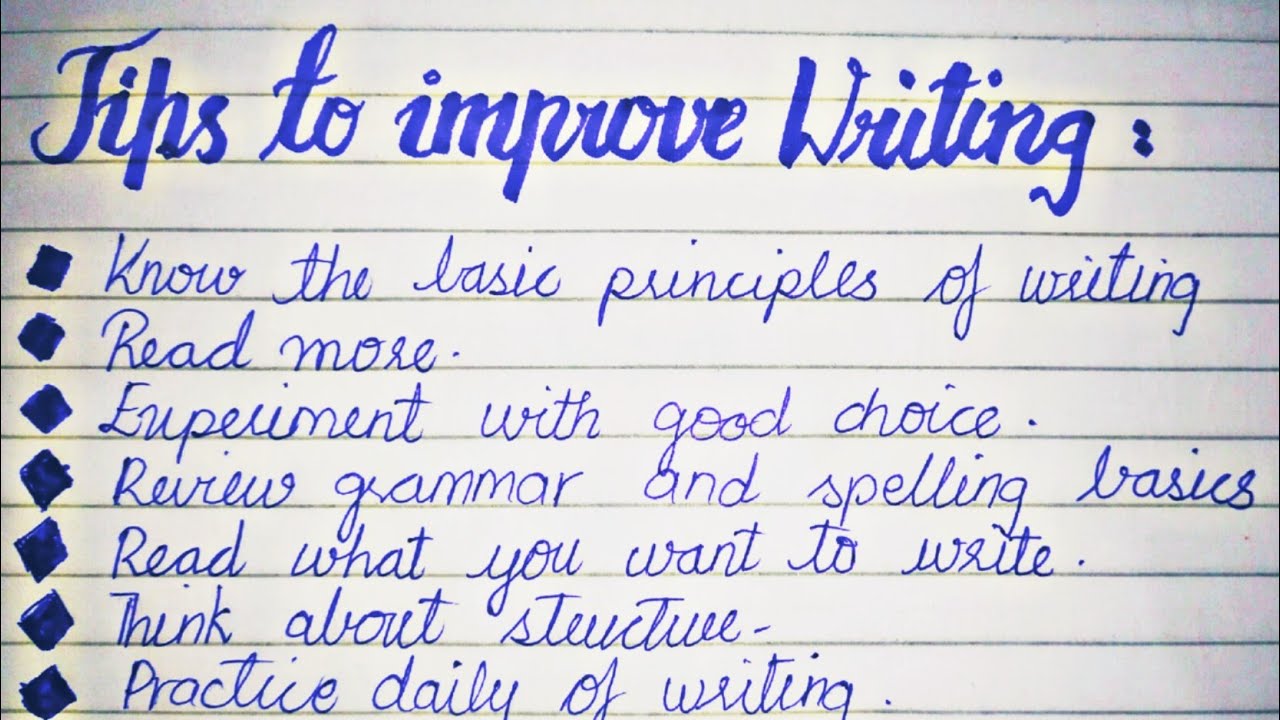 Tips to improve Writing :
Know the basic principles of writing
Read more.
Experiment with good choice.
Review grammar and spelling basics
Read what you want to write.
Think about structure-
Practice daily of writing.